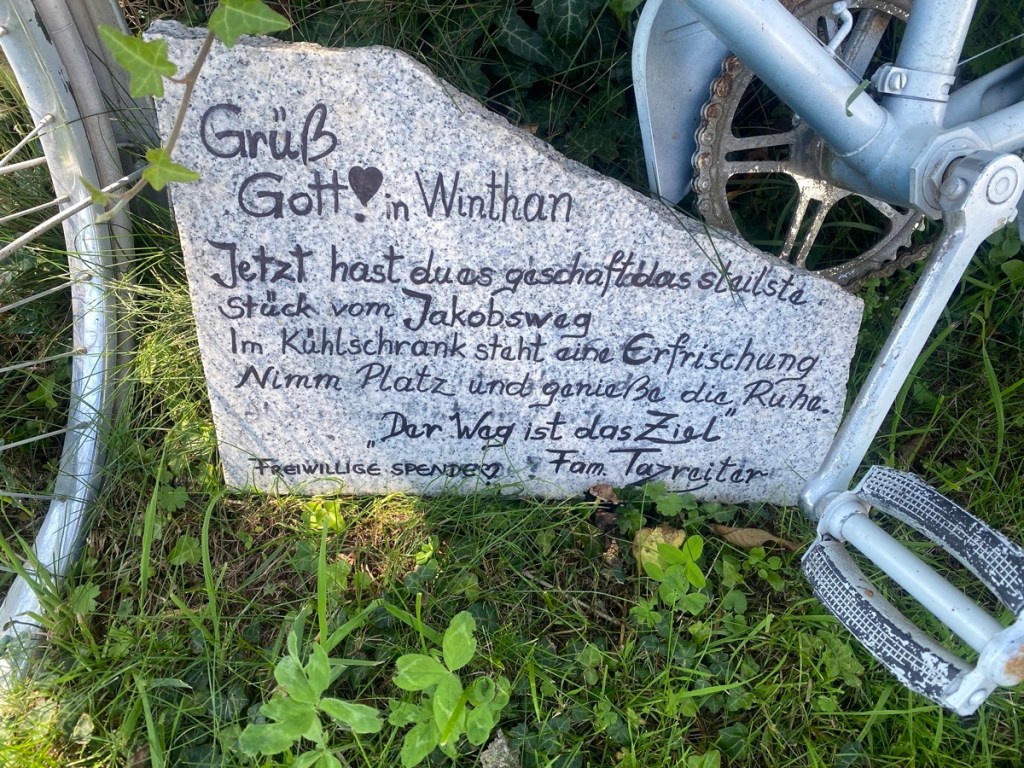 Grüß
Gott! in Winthan
Jetzt hast du es geschafft das steilste
Stück vom Jakobsweg
Im Kühlschrank steht eine Erfrischung
Nimm Platz und genieße die Ruhe.
„Der Weg ist das Ziel"
FREIWILLIGE SPENDE♡ Fam. Tazreiter